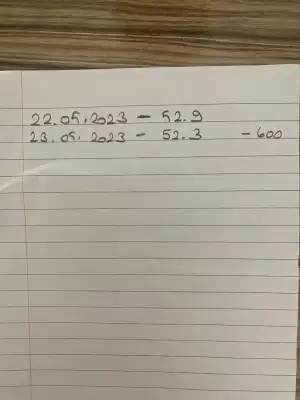 22.05.2023 - 52.9
23.05.2023 - 52.3 -600